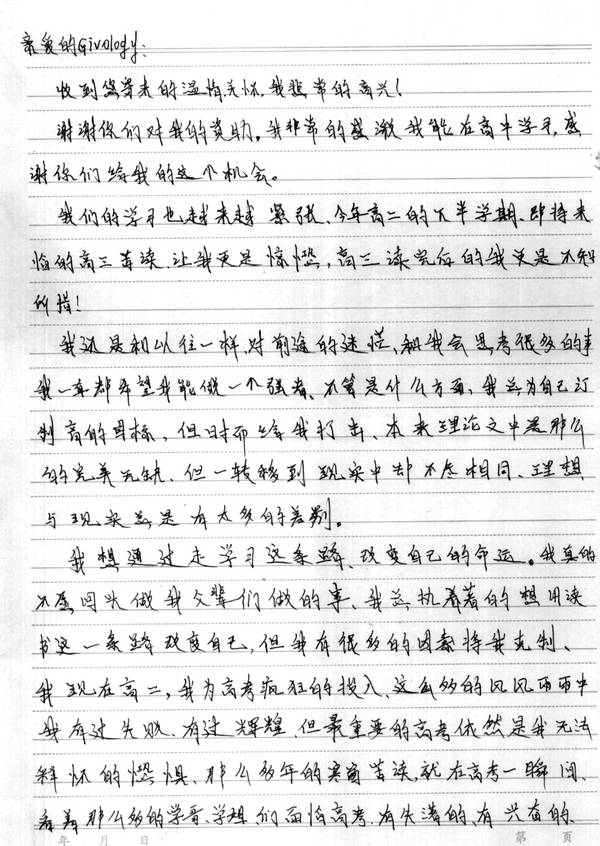 亲爱的Givology:
收到您寄来的温情关怀,我非常的高兴!
谢谢你们对我的资助。我非常的感激我能在高中学习,感
谢你们给我的这个机会。
我们的学习也越来越紧张、今年高二的下半学期、即将来
临的高三苦读、让我更是惊恐,高三读完后的我更是不知
所措!
我还是和以往一样,对前途的迷茫、和我会思考很多的事
我一直都希望我能做一个强者、不管是什么方面,我总为自己订
制高的目标,但时而给我打击、本来理论文中是那么
的完美无缺、但一转移到现实中却不尽相同、理想
与现实总是有太多的差别。
我想通过走学习这条路、改变自己的命运。我真的
不愿回头做我父辈们做的事、我总执着着的想用读
书这一条路改变自己,但我有很多的因素将我克制、
我现在高二,我为高考疯狂的投入、这么多的风风雨雨中
我有过失败、有过辉煌、但最重要的高考依然是我无法
释怀的恐惧、那么多年的寒窗苦读,就在高考一瞬间、
看着那么多的学哥、学姐们面临高考、有失落的、有兴奋的、
年 月 日
第 页